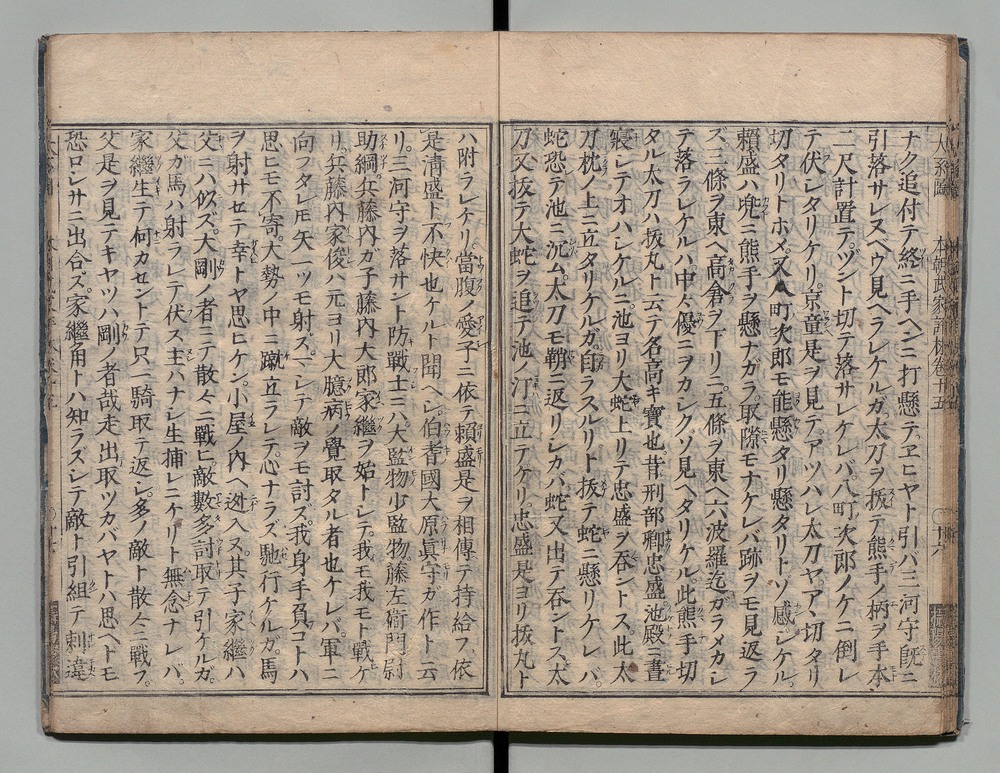 ナク追付テ終ニ手ヘンニ打懸テヱヒヤト引バ三河守既ニ
引落サレヌベウ見ヘラレケルガ太刀ヲ抜テ熊手ノ柄ヲ手本
二尺計置テヅント切テ落サレケレバ八町次郎ノケニ倒レ
テ伏レタリケリ京童是ヲ見テアツハレ太刀ヤアヽ切タリ
切タリトホメ又八町次郎モ能懸タリ懸タリトゾ感シケル
頼盛ハ兜ニ熊手ヲ懸ナガラ取際モナケレバ跡ヲモ見返ラ
ズ三條ヲ東ヘ高倉ヲ下リニ五條ヲ東ヘ六波羅迄ガラメカシ
テ落ラレケルハ中々優ニヲカシクソ見ヘタリケル此熊手切
タル太刀ハ抜丸ト云テ名高キ寶也昔刑部卿忠盛池殿ニ晝
寢シテオハシケルニ池ヨリ大蛇上リテ忠盛ヲ呑ントス此太
刀枕ノ上ニ立タリケルガ自ラスルリト抜テ蛇ニ懸リケレバ
蛇恐テ池ニ沉ム太刀モ鞘ニ返リシカバ蛇又出テ呑ントス太
刀又抜テ大蛇ヲ追テ池ノ汀ニ立テケリ忠盛是ヨリ抜丸ト
ハ附ラレケリ當腹ノ愛子ニ依テ頼盛是ヲ相傳テ持給フ依
是清盛ト不快也ケルト聞ヘシ伯耆國大原眞守ガ作ト云
リ三河守ヲ落サント防戰士ニハ大監物少監物藤左衛門尉
助綱兵藤内ガ子藤内大郎家継ヲ始トシテ我モ我モト戰ケ
リ兵藤内家俊ハ元ヨリ大臆病ノ覺取タル者也ケレバ軍ニ
向フタレモ矢一ツモ射ズマシテ敵ヲモ討ズ我身手負コトハ
思ヒモ不寄大勢ノ中ニ蹴立ラレテ心ナラズ馳行ケルガ馬
ヲ射サセテ幸トヤ思ヒケン小屋ノ内ヘ迯入ヌ其子家継ハ
父ニハ似ズ大剛ノ者ニテ散々ニ戰ヒ敵數多討取テ引ケルガ
父カ馬ハ射ラレテ伏ス主ハナシ生捕レニケリト無念ナレバ
家継生テ何カセントテ只一騎取テ返シ多ノ敵ト散々ニ戰フ
父是ヲ見テキヤツハ剛ノ者哉走出取ツカバヤトハ思ヘドモ
恐ロシサニ出合ズ家継角トハ知ラズシテ敵ト引組テ刺違